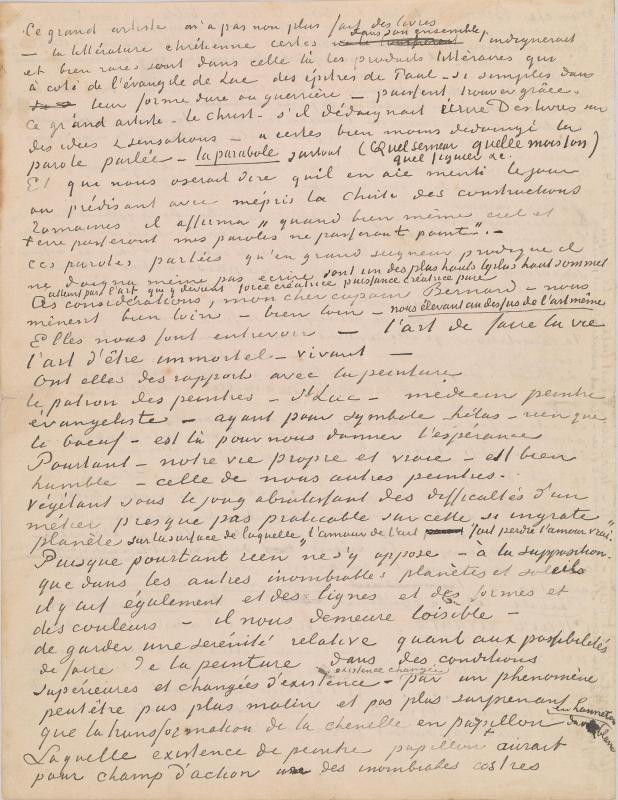 Ce grand artiste n'a pas non plus fait des livres
— la littérature chrétienne certes dans son ensemble, l'indignerait
et bien rares sont dans celle là les produits littéraires qui
à coté de l'évangile de Luc des épitres de Paul – si simples dans
leur forme dure ou guerrière – puissent trouver grâce.
Ce grand artiste – le Christ – s'il dédaignait écrire Des livres sur
des idées & sensations – a certes bien moins dédaigné la
parole parlée – la parabole surtout (Quel semeur quelle moisson)
quel figuier &c.
Et que nous oserait dire qu'il en aie menti le jour
ou prédisant avec mépris la chûte des constructions
romaines il affirma „quand bien même ciel et
terre passeront mes paroles ne passeront point”. –
Ces paroles parlées qu'en grand seigneur prodigue il
ne daigna même pas ecrire sont un des plus hauts le plus haut sommet
atteint par l'art qui y devient force créatrice puissance créatrice pure
Ces considérations, mon cher copain Bernard – nous
mènent bien loin – bien loin – nous élevant au dessus de l'art même
Elles nous font entrevoir — l'art de faire la vie
l'art d'être immortel – vivant —
Ont elles des rapports avec la peinture
le patron des peintres – St Luc – médecin peintre
evangeliste – ayant pour symbole hélas – rien que
le boeuf – est là pour nous donner l'espérance
Pourtant – notre vie propre et vraie – est bien
humble – celle de nous autres peintres.
Végétant sous le joug abrutissant des difficultés d'un
métier presque pas praticable sur cette si ingrate
planète sur la surface de laquelle „l'amour de l'art fait perdre l'amour vrai.”
Puisque pourtant rien ne s'y oppose – à la supposition.
que dans les autres inombrables planètes et soleils
il y ait également et des lignes et des formes et
des couleurs – il nous demeure loisible –
de garder une sérénité relative quant aux possibilités
de faire de la peinture dans des conditions
supérieures et changées d'existence – existence changée par un phénomène
peutêtre pas plus malin et pas plus surprenant
que la transformation de la chenille en papillon du ver blanc en hanneton
Laquelle existence de peintre papillon aurait
pour champ d'action un des inombrables astres